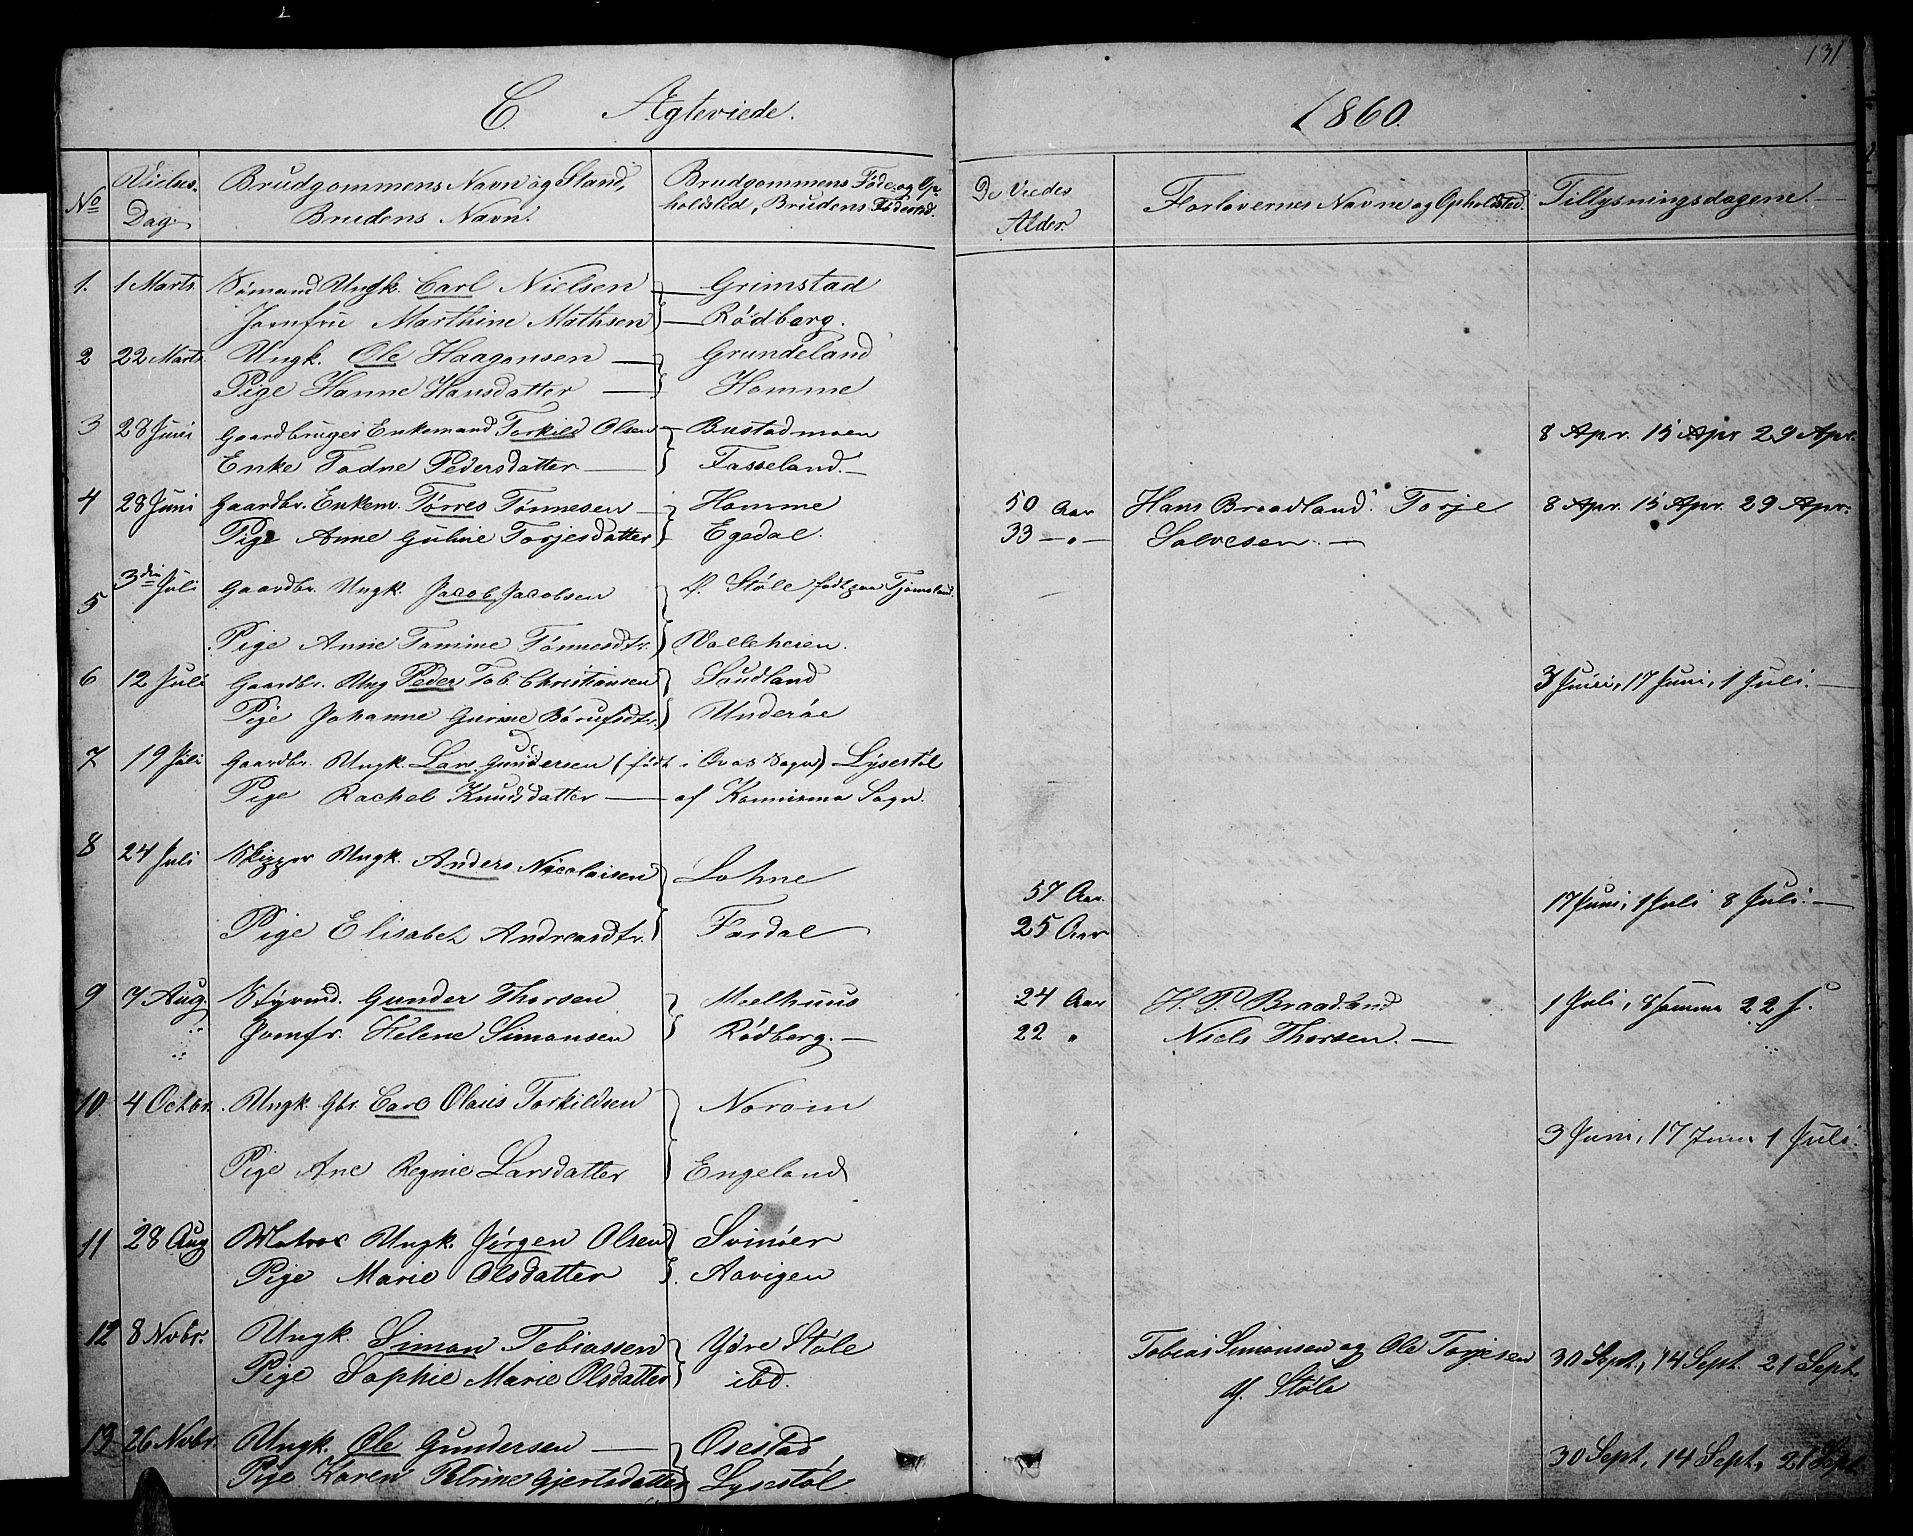 131
C. Ægteviede. 1860.
No
Vielses-
Dag.
Brudgommens Navn og Stand,
Brudens Navn.
Brudgommens Føde- og Op-
holdsted, Brudens Fødested.
De Viedes
Alder.
Forlovernes Navne og Opholdsted.
Tillysningsdagene.
1. 1 Marts. Sømand Ungk. Carl Nielsen Grimstad
Jomfru Marthine Mathsen Rødberg.
2 22 Marts Ungk. Ole Haagensen Grundeland
Pige Hanne Hansdatter Homme
3 28 Juni Gaardbruger Enkemand Torkild Olsen Bustadmoen 8 Apr. 15 Apr 29 Apr.
Enke Tadne Pedersdatter Fasseland.
4 28 Juni Gaardbr. Enkem. Tørres Tønnesen Homme 50 Aar Hans Braadland. Torje 8 Apr. 15 Apr. 29 Apr.
Pige Anne Guline Torjesdatter Egedal. 33 — " — Salvesen.
5 3die Juli Gaardbr. Ungk. Jacob Jacobsen af Støle født paa Tjomsland.
Pige Anne Tomine Tønnesdtr. Valleheien.
6 12 Juli Gaardbr. Ung Peder Tob. Christiansen Sandland 3 Juni, 17 Juni, 1 Juli.
Pige Johanne Gurine Børufsdtr. Underøe
7 19 Juli Gaardbr. Ungk. Lars Gundersen (født i Ovas Sogn) Lysestøl
Pige Rachel Knudsdatter af Konnisma Sogn.
8 24 Juli Skipper Ungk. Anders Nicolaisen Lohne 57 Aar. 17 Juni, 1 Juli 8 Juli.
Pige Elisabet Andreasdtr. Fardal 25 Aar
9 7 Aug. Styrmd. Gunder Thorsen Meelhuus 24 Aar H. P. Braadland 1 Juli, 8 samme 22 J.
Jomfr. Helene Simonsen Rødberg. 22 " Niels Thorsen.
10 4 Octbr. Ungk. Gbr. Carl Olaus Torkildsen Noraim 3 Juni, 17 Juni 1 Juli.
Pige Ane Regine Larsdatter Engeland
11 28 Aug Matros Ungk. Jørgen Olsen Svinøer
Pige Marie Olsdatter Aavigen
12 8 Novbr. Ungk. Simon Tobiassen Ydre Støle Tobias Simonsen og Ole Torjesen 30 Sept., 14 Sept. 21 Sept.
Pige Sophie Marie Olsdatter ibd. af Støle
13 26 Novbr. Ungk. Ole Gundersen Osestad 30 Sept, 14 Sept, 21 Sept
Pige Karen Petrine Gjertsdatter Lysestøl.